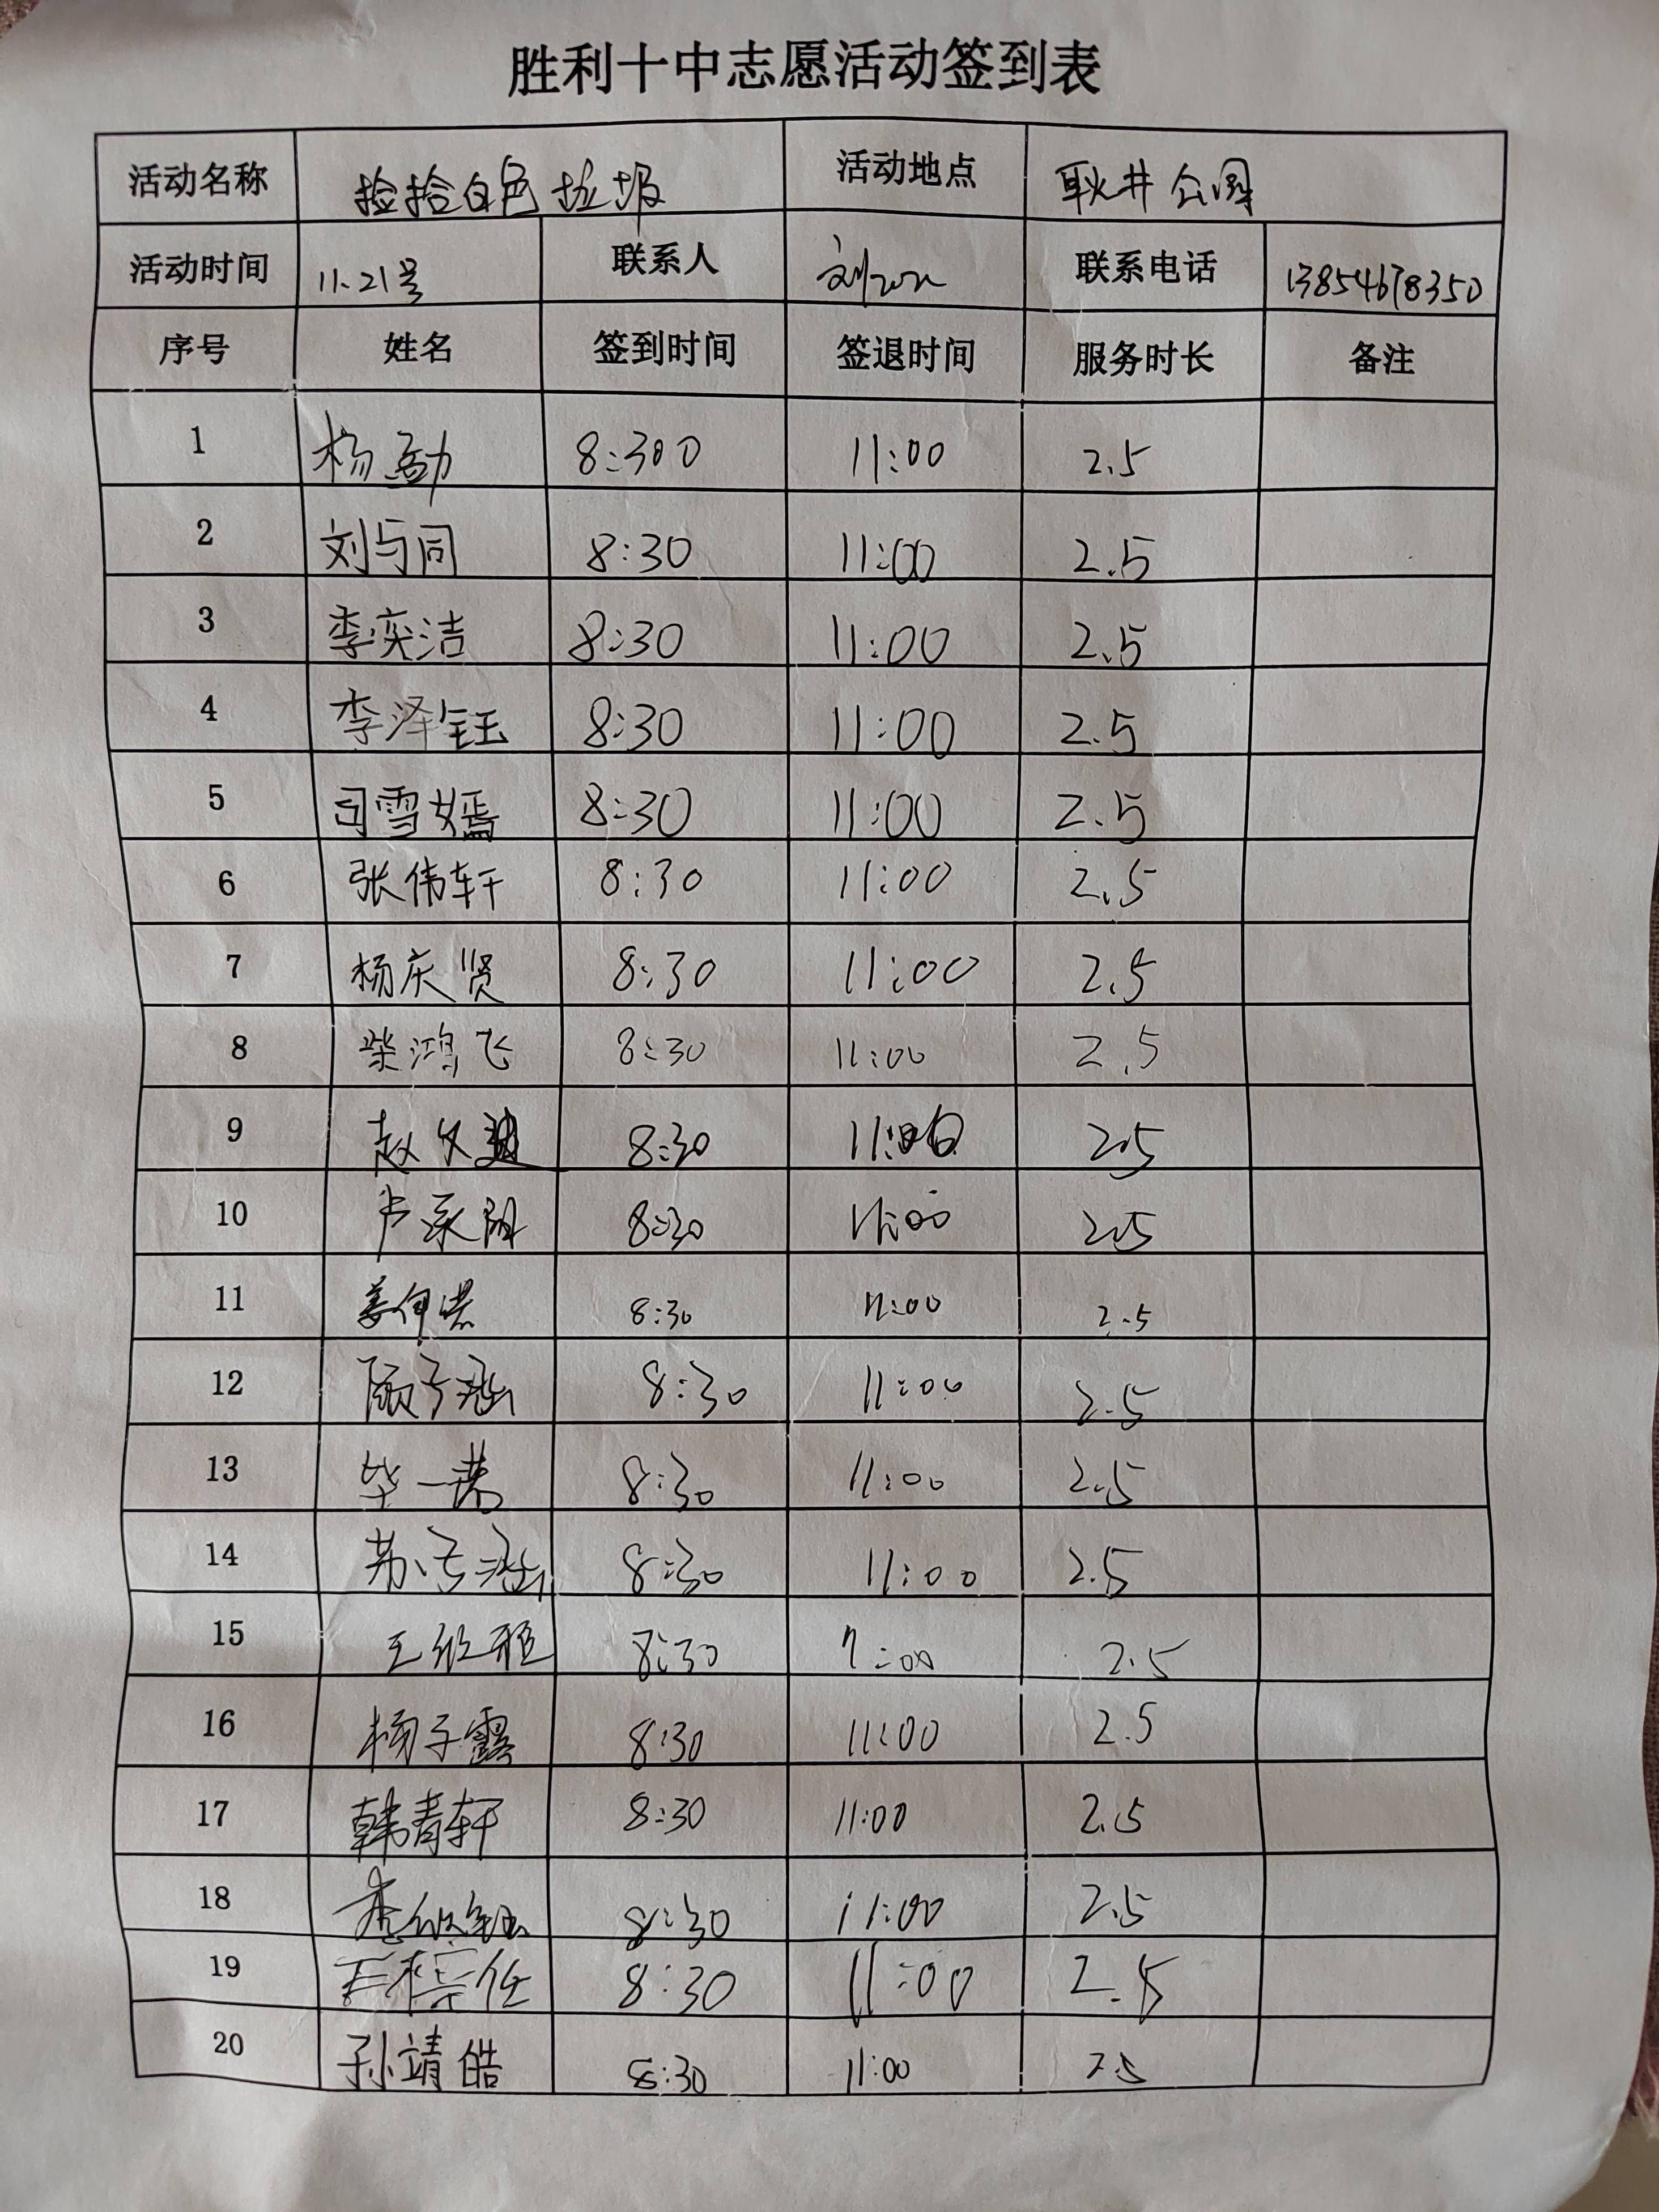 胜利十中志愿活动签到表
活动名称 捡拾白色垃圾 活动地点 耿井公园
活动时间 11.21号 联系人 刘 联系电话 13854678350
序号 姓名 签到时间 签退时间 服务时长 备注
1 杨勐 8:300 11:00 2.5
2 刘与同 8:30 11:00 2.5
3 李奕洁 8:30 11:00 2.5
4 李泽钰 8:30 11:00 2.5
5 司雪嫣 8:30 11:00 2.5
6 张伟轩 8:30 11:00 2.5
7 杨庆贤 8:30 11:00 2.5
8 柴鸿飞 8:30 11:00 2.5
9 赵 8:30 11:00 2.5
10 卢承阳 8:30 11:00 2.5
11 姜 8:30 11:00 2.5
12 顾子涵 8:30 11:00 2.5
13 毕一 8:30 11:00 2.5
14 苏子涵 8:30 11:00 2.5
15 王 8:30 11:00 2.5
16 杨子露 8:30 11:00 2.5
17 韩青轩 8:30 11:00 2.5
18 李欣钰 8:30 11:00 2.5
19 王 8:30 11:00 2.5
20 孙靖皓 8:30 11:00 2.5